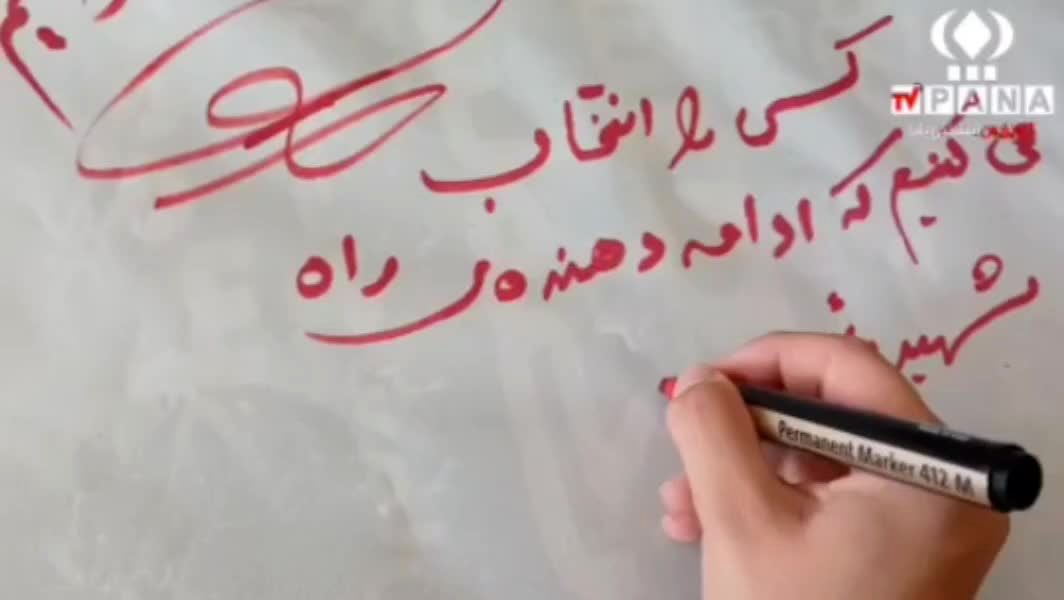 کسی را انتخاب
می کنیم که ادامه دهنده ی راه
شهید
TV PANA
Permanent Marker 412 M